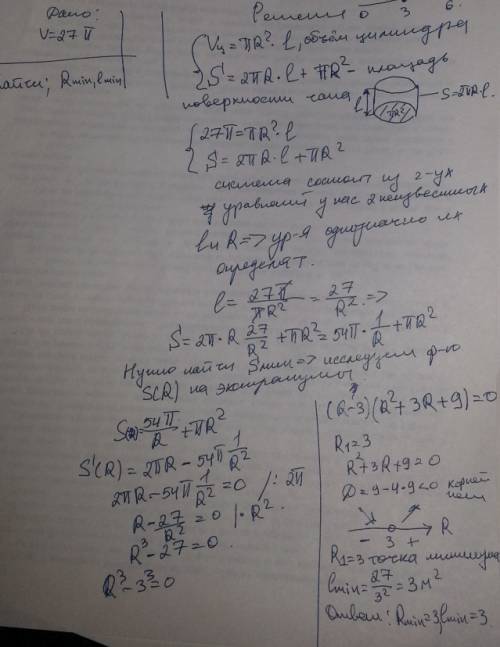 Дано:
V=27π
найти; Rmin, lmin
Решение
0 3 6
Vц=πR²·l, объём цилиндра
S=2πR·l+πR²- площадь
поверхности чана
l
πR²
S=2πR·l.
27π=πR²·l
S=2πR·l+πR²
система состоит из 2-ух
уравнений у нас 2 неизвестных
l и R=> ур-я однозначно их
определят.
l=27π/πR²=27/R²=>
S=2π·R 27/R²+πR²=54π·1/R+πR²
Нужно найти Sмин=> исследуем ф-ю
S(R) на экстремумы
S(R)=54π/R+πR²
S'(R)=2πR-54π 1/R²
2πR-54π 1/R²=0 /:2π
R-27/R²=0 |·R²
R³-27=0.
R³-3³=0
(R-3)(R²+3R+9)=0
R1=3
R²+3R+9=0
D=9-4·9<0 корней
нет
- 3 + R
R1=3 точка минимума
lmin=27/3²=3м²
Ответ: Rmin=3, lmin=3